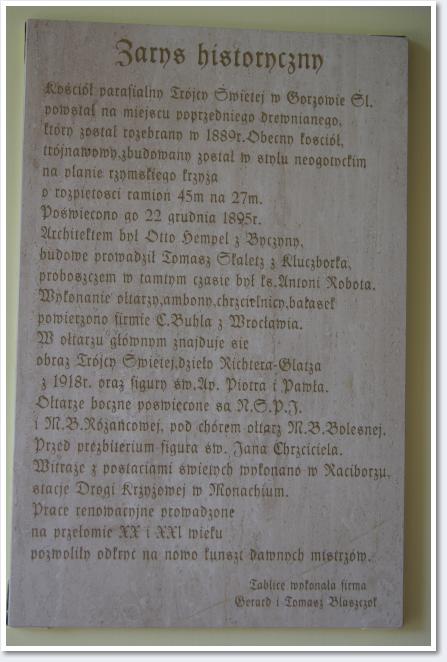 Zarys historyczny
Kościół parafialny Trójcy Świetej w Gorzowie Śl.
powstał na miejscu poprzedniego drewnianego,
który został rozebrany w 1889r.Obecny kościół,
trójnawowy,zbudowany został w stylu neogotyckim
na planie rzymskiego krzyża
o rozpiętości ramion 45m na 27m.
Poświecono go 22 grudnia 1895r.
Architektem był Otto Hempel z Byczyny,
budowe prowadził Tomasz Skaletz z Kluczborka,
proboszczem w tamtym czasie był ks.Antoni Robota.
Wykonanie ołtarzy,ambony,chrzcielnicy,balasek
powierzono firmie C.Buhla z Wrocławia.
W ołtarzu głównym znajduje sie
obraz Trójcy Świetej,dzieło Richtera-Glatza
z 1918r. oraz figury św.Ap. Piotra i Pawła.
Ołtarze boczne poświecone sa N.S.P.J.
i M.B.Różańcowej, pod chórem ołtarz M.B.Bolesnej.
Przed prezbiterium figura św. Jana Chrzciciela.
Witraże z postaciami świetych wykonano w Raciborzu,
stacje Drogi Krzyżowej w Monachium.
Prace renowacyjne prowadzone
na przełomie XX i XXI wieku
pozwoliły odkryć na nowo kunszt dawnych mistrzów.
Tablice wykonała firma
Gerard i Tomasz Blaszczok